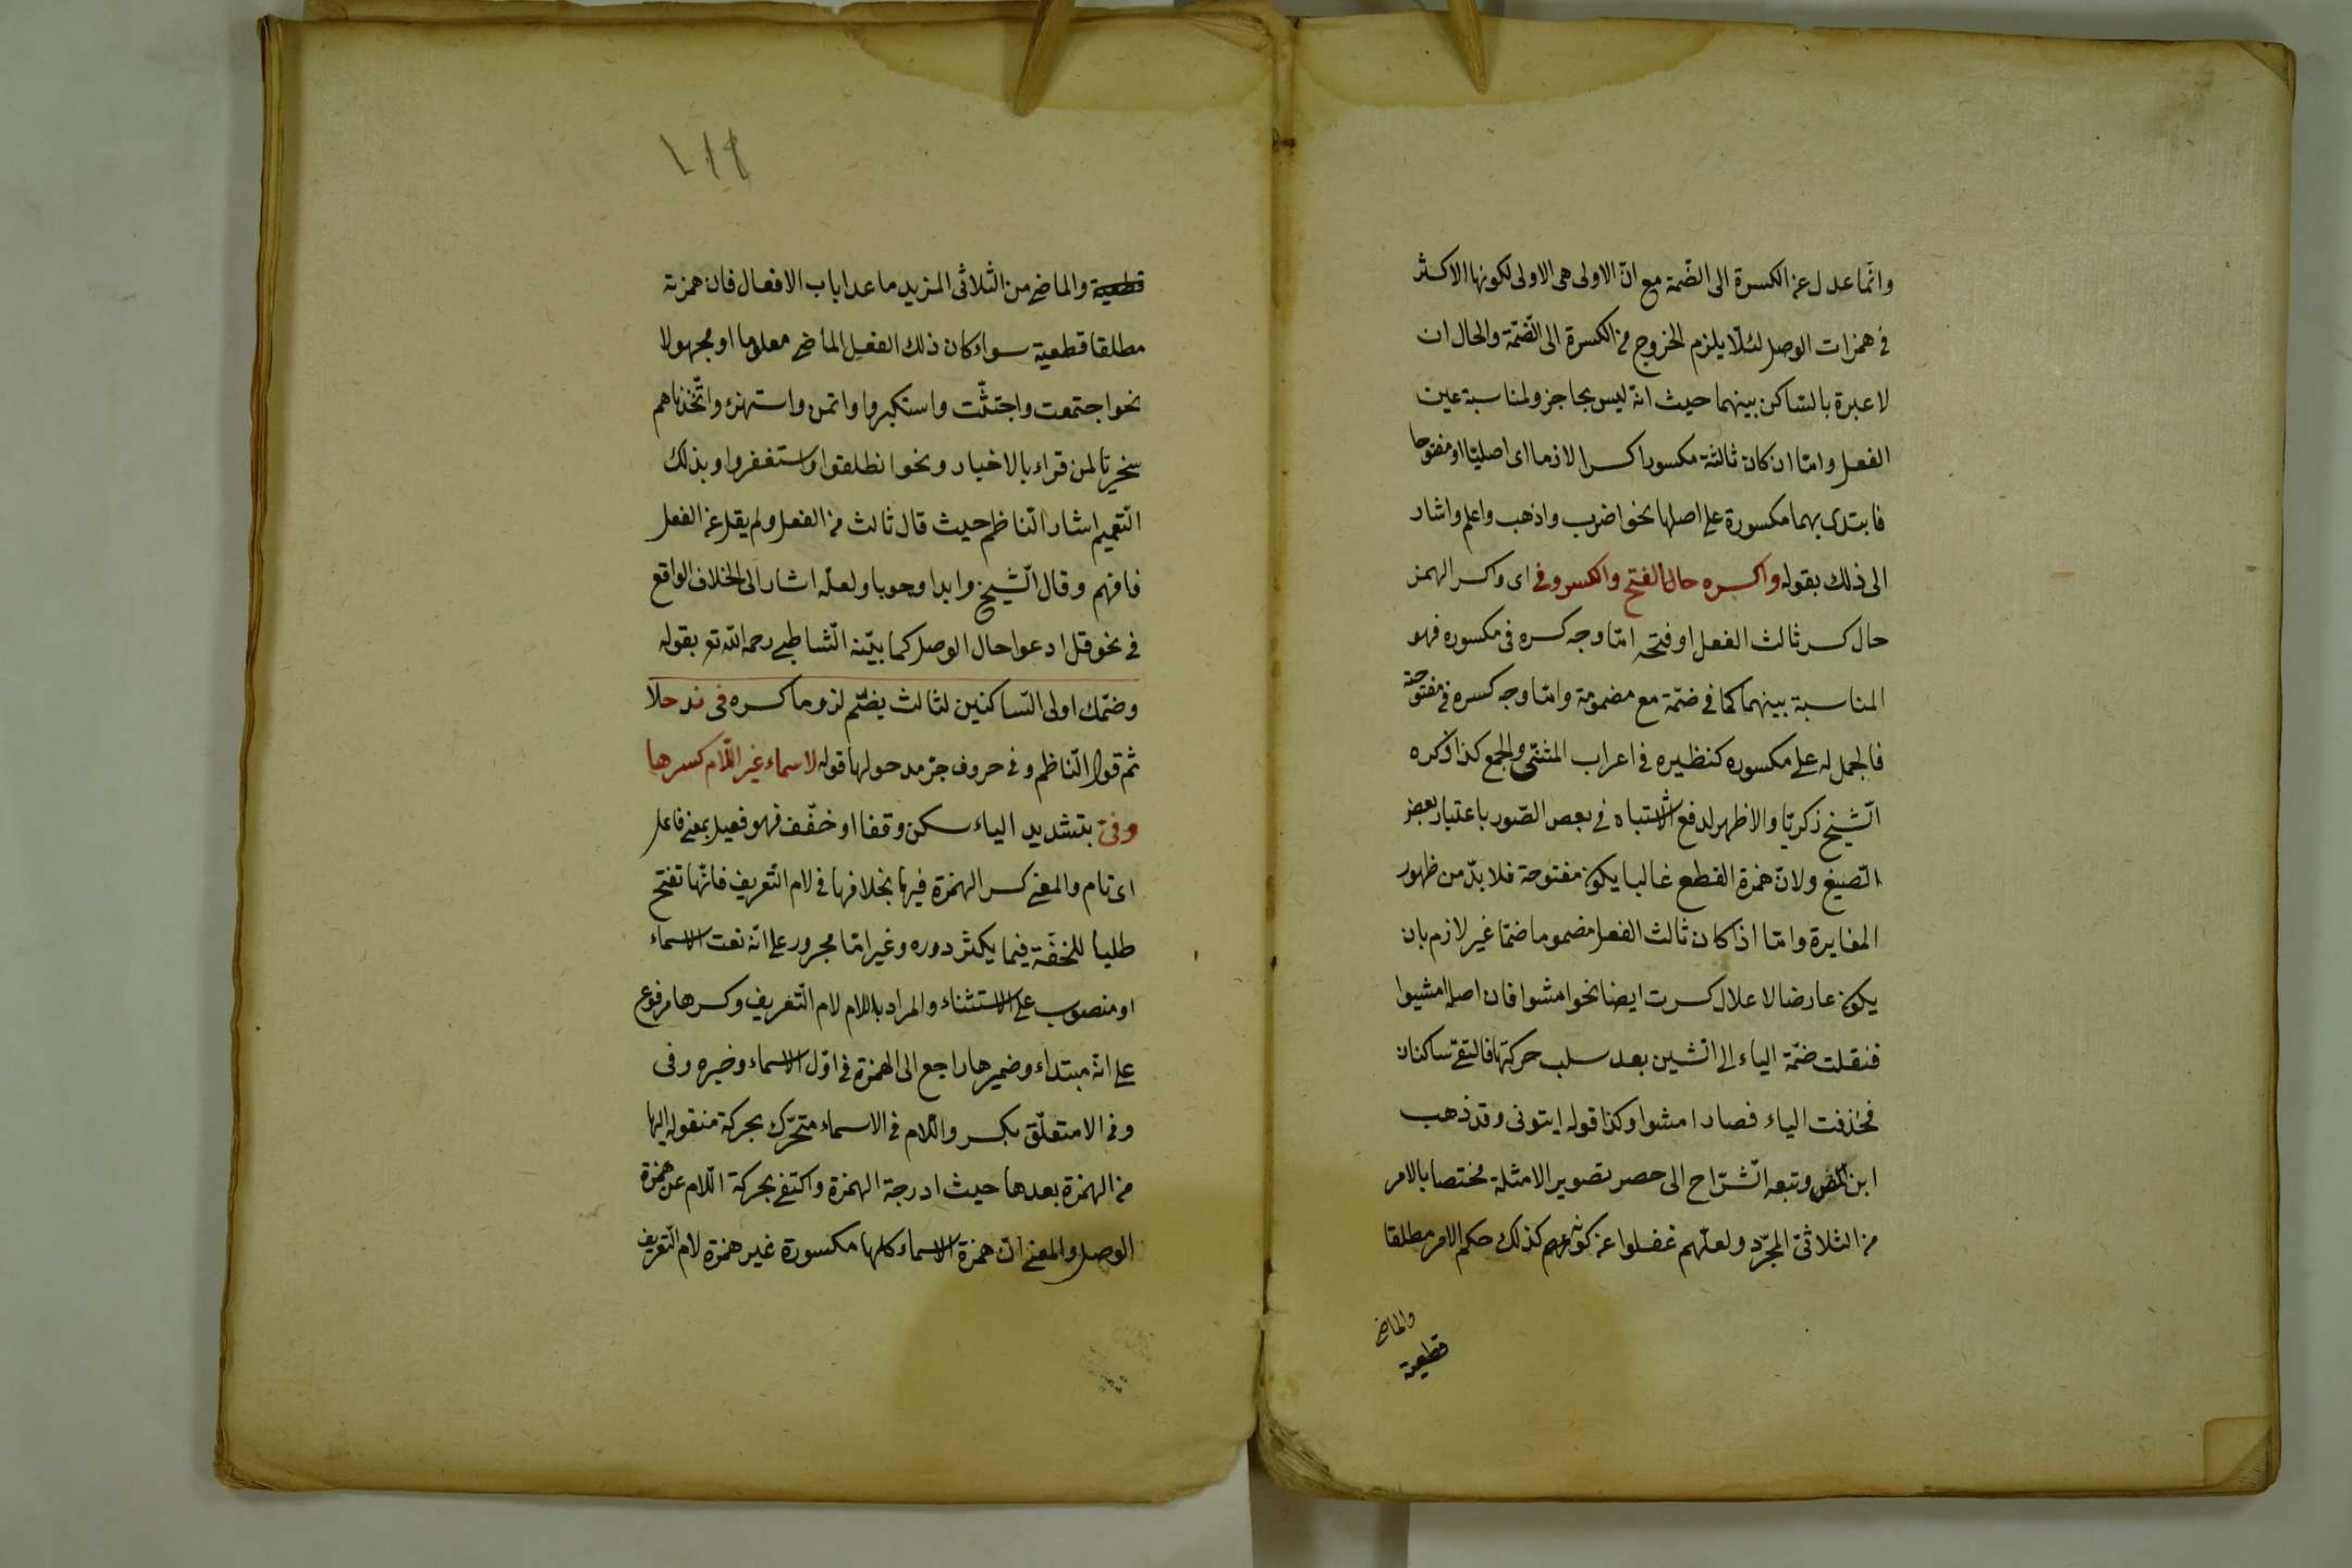 وانّما عدل عن الكسرة الى الضّمة مع انّ الاولى هى الاولى لكونها الاكثر
فى همزات الوصل لئلّا يلزم الخروج من الكسرة الى الضّمّة والحال ان
لا عبرة بالسّاكن بينهما حيث انّه ليس بحاجز ولمناسبة عين
الفعل وامّا ان كان ثالثه مكسورا كسرا لازما اى اصليّا او مفتوحا
فابتدئ بهما مكسورة على اصلها نحو اضرب واذهب واعلم واشار
الى ذلك بقوله واكسره حال الفتح والكسر وفى اى وكسر الهمز
حال كسر ثالث الفعل او فتحه امّا وجه كسره فى مكسوره فهو
المناسبة بينهما كما فى ضمّة مع مضمومة وامّا وجه كسره فى مفتوحه
فالحمل له على مكسوره كنظيره فى اعراب المثنّى والجمع كذا ذكره
الشّيخ زكريّا والاظهر لدفع الاشتباه فى بعض الصّور باعتبار بعض
الصّيغ ولانّ همزة القطع غالبا يكون مفتوحة فلا بدّ من ظهور
المغايرة وامّا اذا كان ثالث الفعل مضموما ضمّا غير لازم بان
يكون عارضا لاعلال كسرت ايضا نحو امشوا فان اصله امشيوا
فنقلت ضمّة الياء الى الشّين بعد سلب حركتها فالتقى ساكنان
فحذفت الياء فصار امشوا وكذا قوله ايتونى وقد ذهب
ابن المص وتبعه الشّرّاح الى حصر تصوير الامثلة مختصا بالامر
من الثلاثىّ المجرّد ولعلّهم غفلوا عن كونهم كذلك حكم الامر مطلقا
والماضى
قطعية
١١٩
قطعية والماضى من الثّلاثى المزيد ما عدا باب الافعال فان همزته
مطلقا قطعية سواء كان ذلك الفعل الماضى معلوما او مجهولا
نحو اجتمعت واجتثّت واستكبروا واتمن واستهزء واتّخذناهم
سخريّا لمن قراء بالاخبار ونحو انطلقوا واستغفروا وبذلك
التّعميم اشار النّاظم حيث قال ثالث من الفعل ولم يقل عن الفعل
فافهم وقال الشّيخ وابدا وجوبا ولعلّه اشار الى الخلاف الواقع
فى نحو قل ادعوا حال الوصل كما بيّنه الشّاطبى رحمه اللّه تع بقوله
وضمّك اولى السّاكنين لثالث يضّم لزوما كسره فى ند حلا
ثم قول النّاظم وفى حروف جرّ مدحولها قوله لاسماء غير اللّام كسرها
وفىّ بتشديد الياء سكن وقفا او خفّف فهو فعيل بمعنى فاعل
اى تام والمعنى كسر الهمزة فيها بخلافها فى لام التّعريف فانّها تفتح
طلبا للخفّة فيما يكثر دوره وغير امّا مجرور على انّه نعت الاسماء
او منصوب على الاستثناء والمراد باللام لام التّعريف وكسرها مرفوع
على انّه مبتداء وضميرها راجع الى الهمزة فى اوّل الاسماء وخبره وفى
وفى الا متعلّق بكسر واللام فى الاسماء متحرّك بحركة منقوله اليها
من الهمزة بعدها حيث ادرجة الهمزة واكتفى بحركة اللّام عن همزة
الوصل والمعنى انّ همزة الاسماء كلها مكسورة غير همزة لام التّعريف